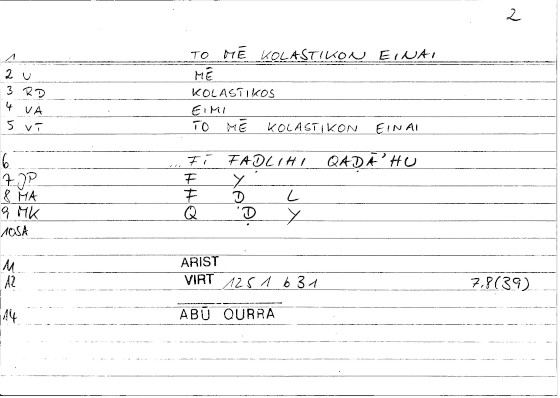 2
1 TO MĒ KOLASTIKON EINAI
2 U MĒ
3 RD KOLASTIKOS
4 VA EIMI
5 VT TO MĒ KOLASTIKON EINAI
6 ... FĪ FAḌLIHI QAḌĀ'HU
7 JP F Y
8 MA F Ḍ L
9 MK Q Ḍ Y
10SA
11 ARIST
12 VIRT 1251 b 31 7.8(39)
14 ABŪ QURRA